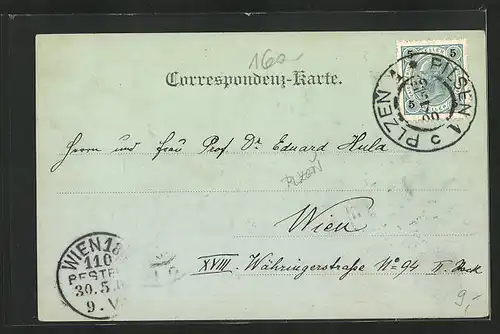 160
Correspondenz-Karte.
5 5
5
PILSEN 1 PLZEN 1
Herrn und Frau Prof Dr Eduard Hula
Plzeň
Wien
XVIII. Währingerstraße No 94 II. Stock
WIEN 18
110
BESTE
30.5.0
9. V
9,-